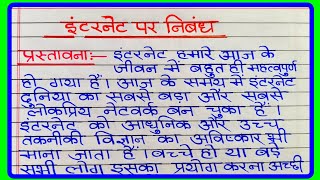 इंटरनेट पर निबंध
प्रस्तावना:- इंटरनेट हमारे आज के
जीवन में बहुत ही महत्वपूर्ण
हो गया है। आज के समय में इंटरनेट
दुनिया का सबसे बड़ा और सबसे
लोकप्रिय नेटवर्क बन चुका है।
इंटरनेट को आधुनिक और उच्च
तकनीकी विज्ञान का आविष्कार भी
माना जाता है। बच्चे हो या बड़े
सभी लोग इसका प्रयोग करना अच्छी